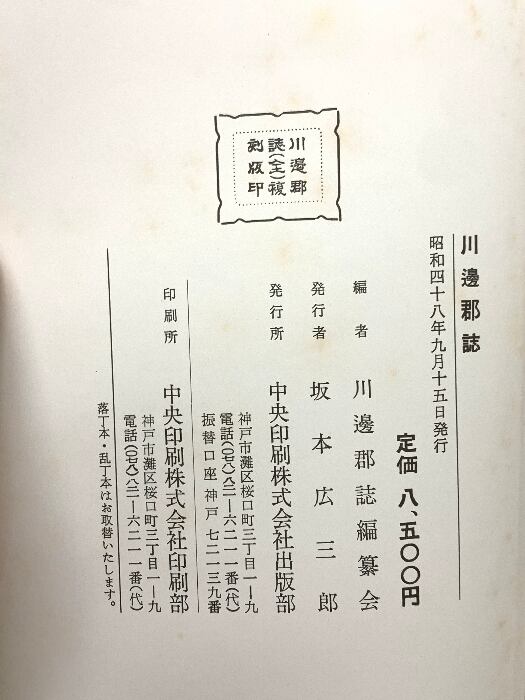 川邊郡
誌(全)複
刻版印
川邊郡誌
昭和四十八年九月十五日発行
定価 八、五〇〇円
編者 川邊郡誌編纂会
発行者 坂本広三郎
発行所 中央印刷株式会社出版部
神戸市灘区桜口町三丁目一ー九
電話(〇七八)八二一ー六二一一番(代)
振替口座 神戸 七二一三九番
印刷所 中央印刷株式会社印刷部
神戸市灘区桜口町三丁目一ー九
電話(〇七八)八二一ー六二一一番(代)
落丁本・乱丁本はお取替いたします。